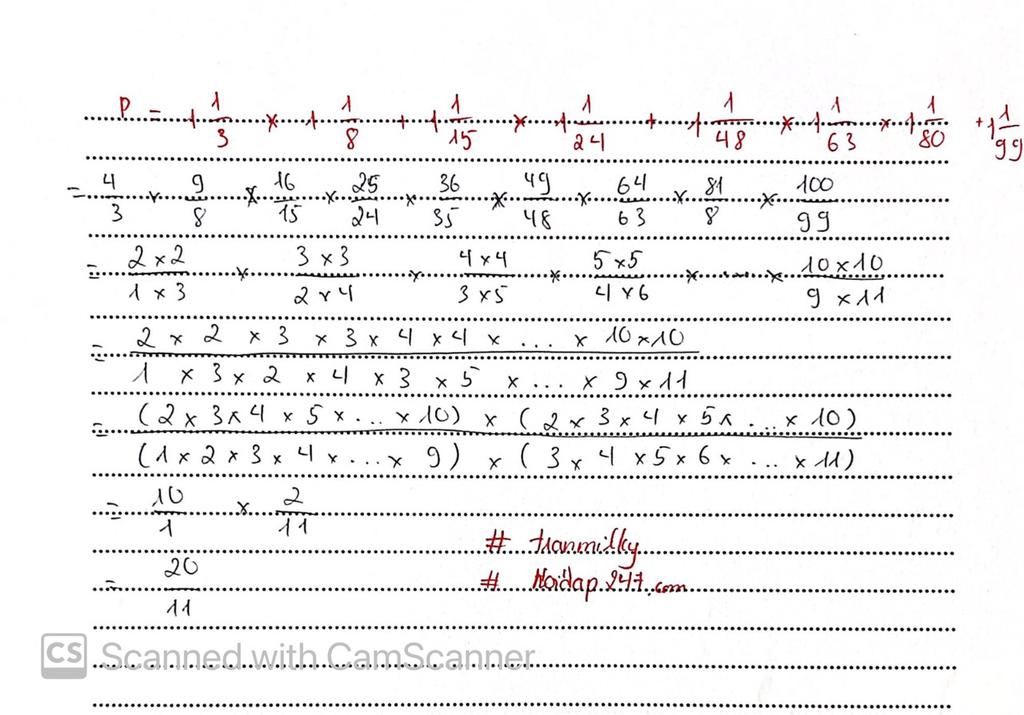 P = 1 1/3 × 1 1/8 + 1 1/15 × 1 1/24 + 1 1/48 × 1 1/63 × 1 1/80 + 1 1/99
= 4/3 × 9/8 × 16/15 × 25/24 × 36/35 × 49/48 × 64/63 × 81/8 × 100/99
= 2×2/1×3 × 3×3/2×4 × 4×4/3×5 × 5×5/4×6 × ... × 10×10/9×11
= 2 × 2 × 3 × 3 × 4 × 4 × ... × 10×10/1 × 3 × 2 × 4 × 3 × 5 × ... × 9×11
= (2 × 3 × 4 × 5 × ... × 10) × (2 × 3 × 4 × 5 × ... × 10)/(1 × 2 × 3 × 4 × ... × 9) × (3 × 4 × 5 × 6 × ... × 11)
= 10/1 × 2/11
# tranmilky
= 20/11
# Hoidap247.com
CS Scanned with CamScanner